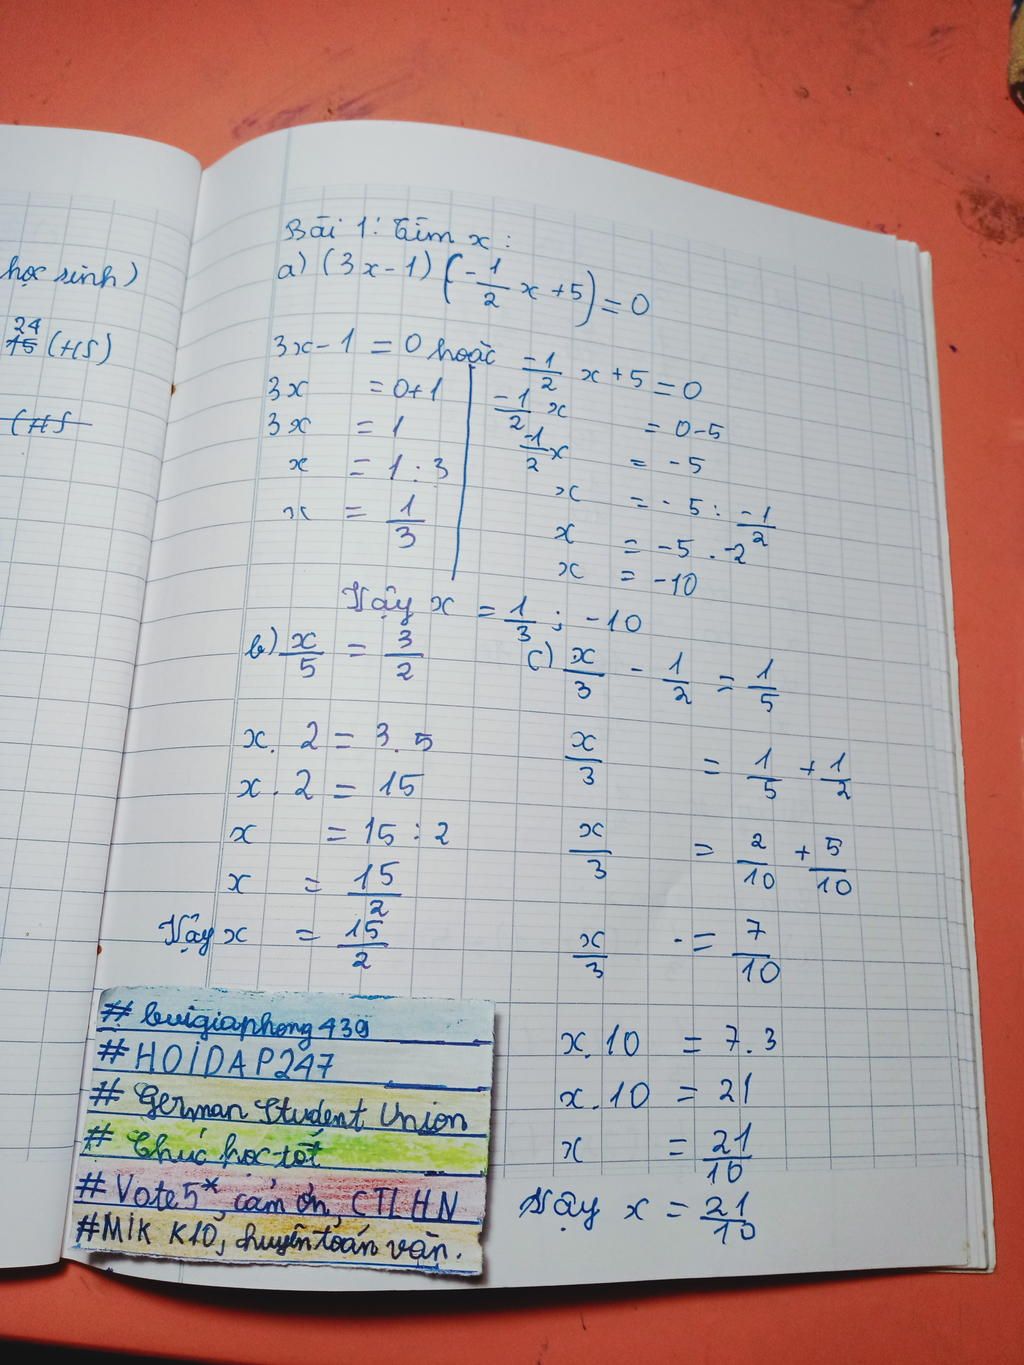 học sinh)
24
15 (HS)
(HS
Bài 1: Tìm x :
a) (3x - 1) (-1/2 x + 5) = 0
3x - 1 = 0 hoặc -1/2 x + 5 = 0
3x = 0 + 1
3x = 1
x = 1 : 3
x = 1/3
-1/2 x = 0 - 5
-1/2 x = -5
x = -5 : -1/2
x = -5 . -2
x = -10
Vậy x = 1/3 ; -10
b) x/5 = 3/2
x . 2 = 3 . 5
x . 2 = 15
x = 15 : 2
x = 15/2
Vậy x = 15/2
c) x/3 - 1/2 = 1/5
x/3 = 1/5 + 1/2
x/3 = 2/10 + 5/10
x/3 = 7/10
x . 10 = 7 . 3
x . 10 = 21
x = 21/10
Vậy x = 21/10
# buigiaphong439
# HOIDAP247
# German Student Union
# Chúc học tốt
# Vote 5*, cảm ơn, CTLHN
#MIK K10, chuyên toán văn.